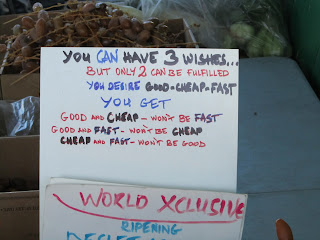 YOU CAN HAVE 3 WISHES...
BUT ONLY 2 CAN BE FULFILLED
YOU DESIRE GOOD-CHEAP-FAST
YOU GET
GOOD AND CHEAP - WON'T BE FAST
GOOD AND FAST - WON'T BE CHEAP
CHEAP AND FAST - WON'T BE GOOD
WORLD XCLUSIVE
RIPENING